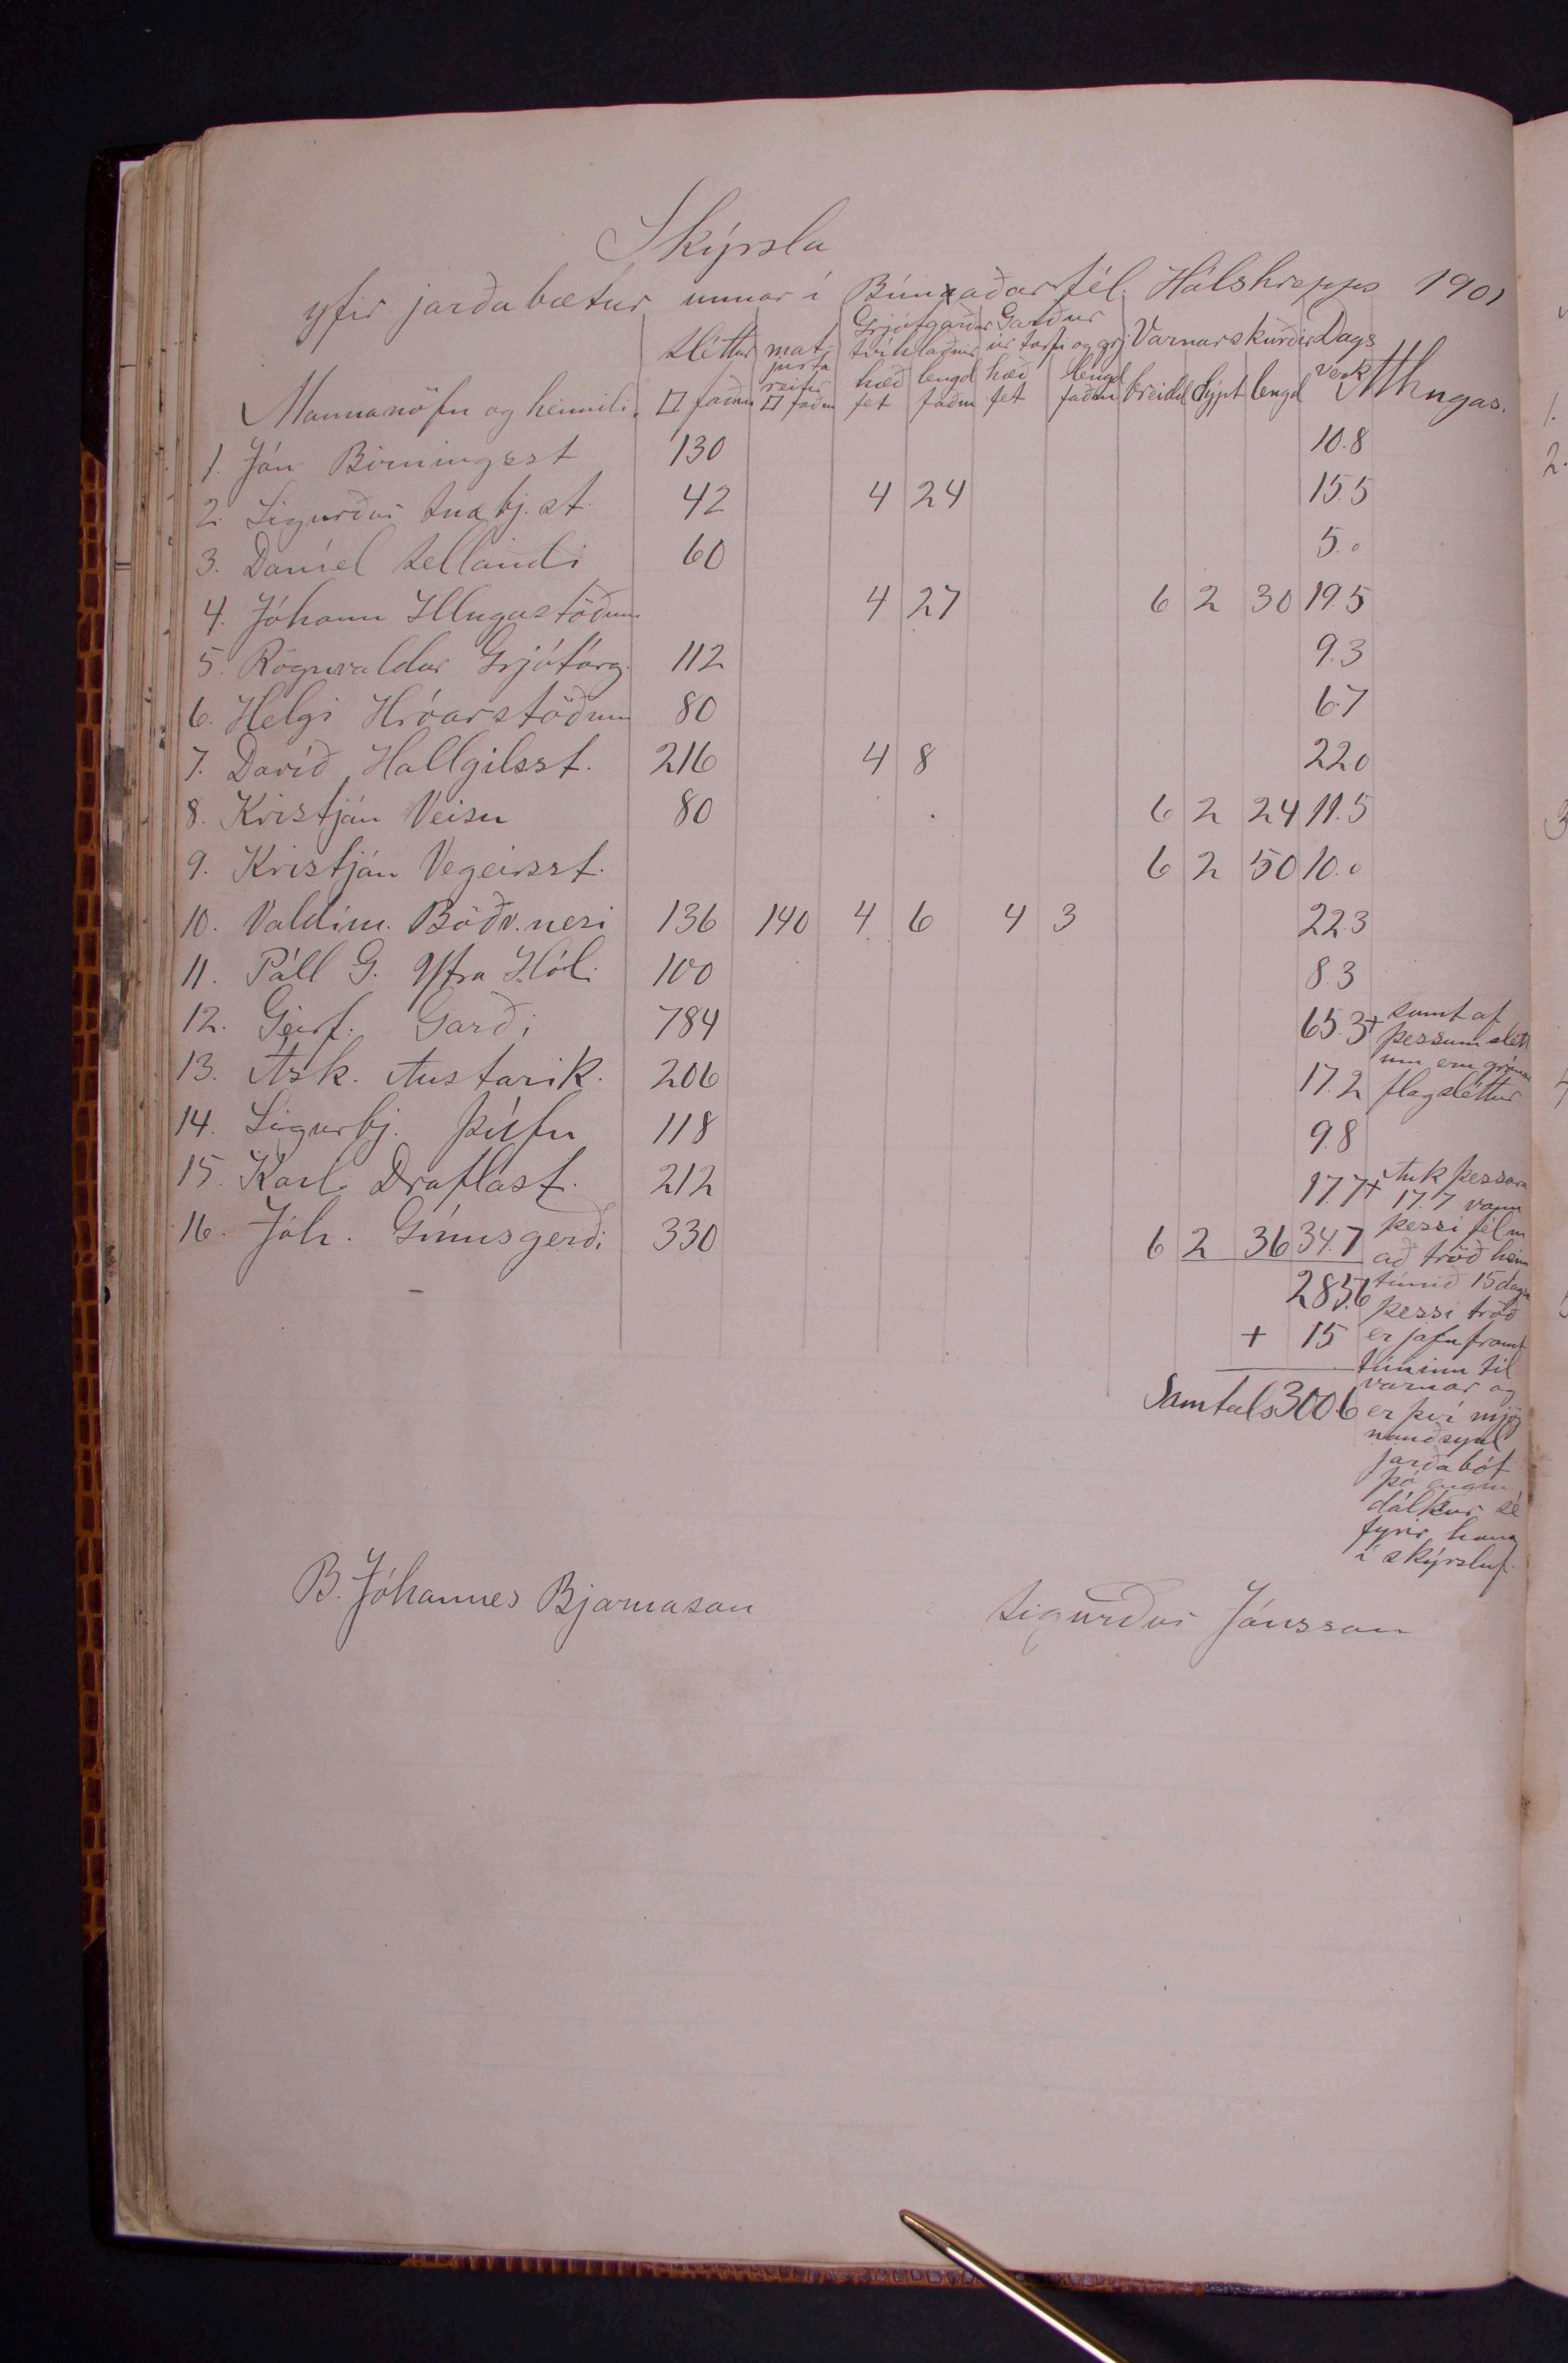 Skýrsla
yfir jarðabætur unnar í Búnaðarfél. Hálshrepps 1901
Mannanöfn og heimili. Sléttur □ faðm matjurta reitir □ faðm Grjótgarðar tvíhlaðnir hæð fet lengd faðm Garður úr torfi og grj. hæð fet lengd faðm Varnarskurðir breidd dýpt lengd Dagsverk Athugas.
1. Jón Birningsst 130 10.8
2. Sigurður Snæbj.st. 42 4 24 15.5
3. Daníel Sellandi 60 5.0
4. Jóhann Illugastöðum 4 27 6 2 30 19.5
5. Rögnvaldur Grjótárg. 112 9.3
6. Helgi Hróarstöðum 80 6.7
7. Davíð Hallgilsst. 216 4 8 22.0
8. Kristján Veisu 80 6 2 24 11.5
9. Kristján Vegeirsst. 6 2 50 10.0
10. Valdim. Böðv.nesi 136 140 4 6 4 3 22.3
11. Páll G. Ytra Hóli 100 8.3
12. Geirf. Garði 784 65.3+
13. Ásk. Austarik. 206 17.2
14. Sigurbj. Þúfu 118 9.8
15. Karl Draflast. 212 17.7+
16. Jóh. Grímsgerði 330 6 2 36 34.7
285.6
+ 15
Samtals 300.6
sumt af
þessum slétt
um eru grónar
flagsléttur
Auk þessara
17.7 vann
þessi félm
að tröð heim
túnið 15 dagsv
þessi tröð
er jafnframt
túninu til
varnar og
er því mjög
nauðsynl
jarðabót
þó engin
dálkur sé
fyrir hana
í skýrsluf.
B. Jóhannes Bjarnason
Sigurður Jónsson